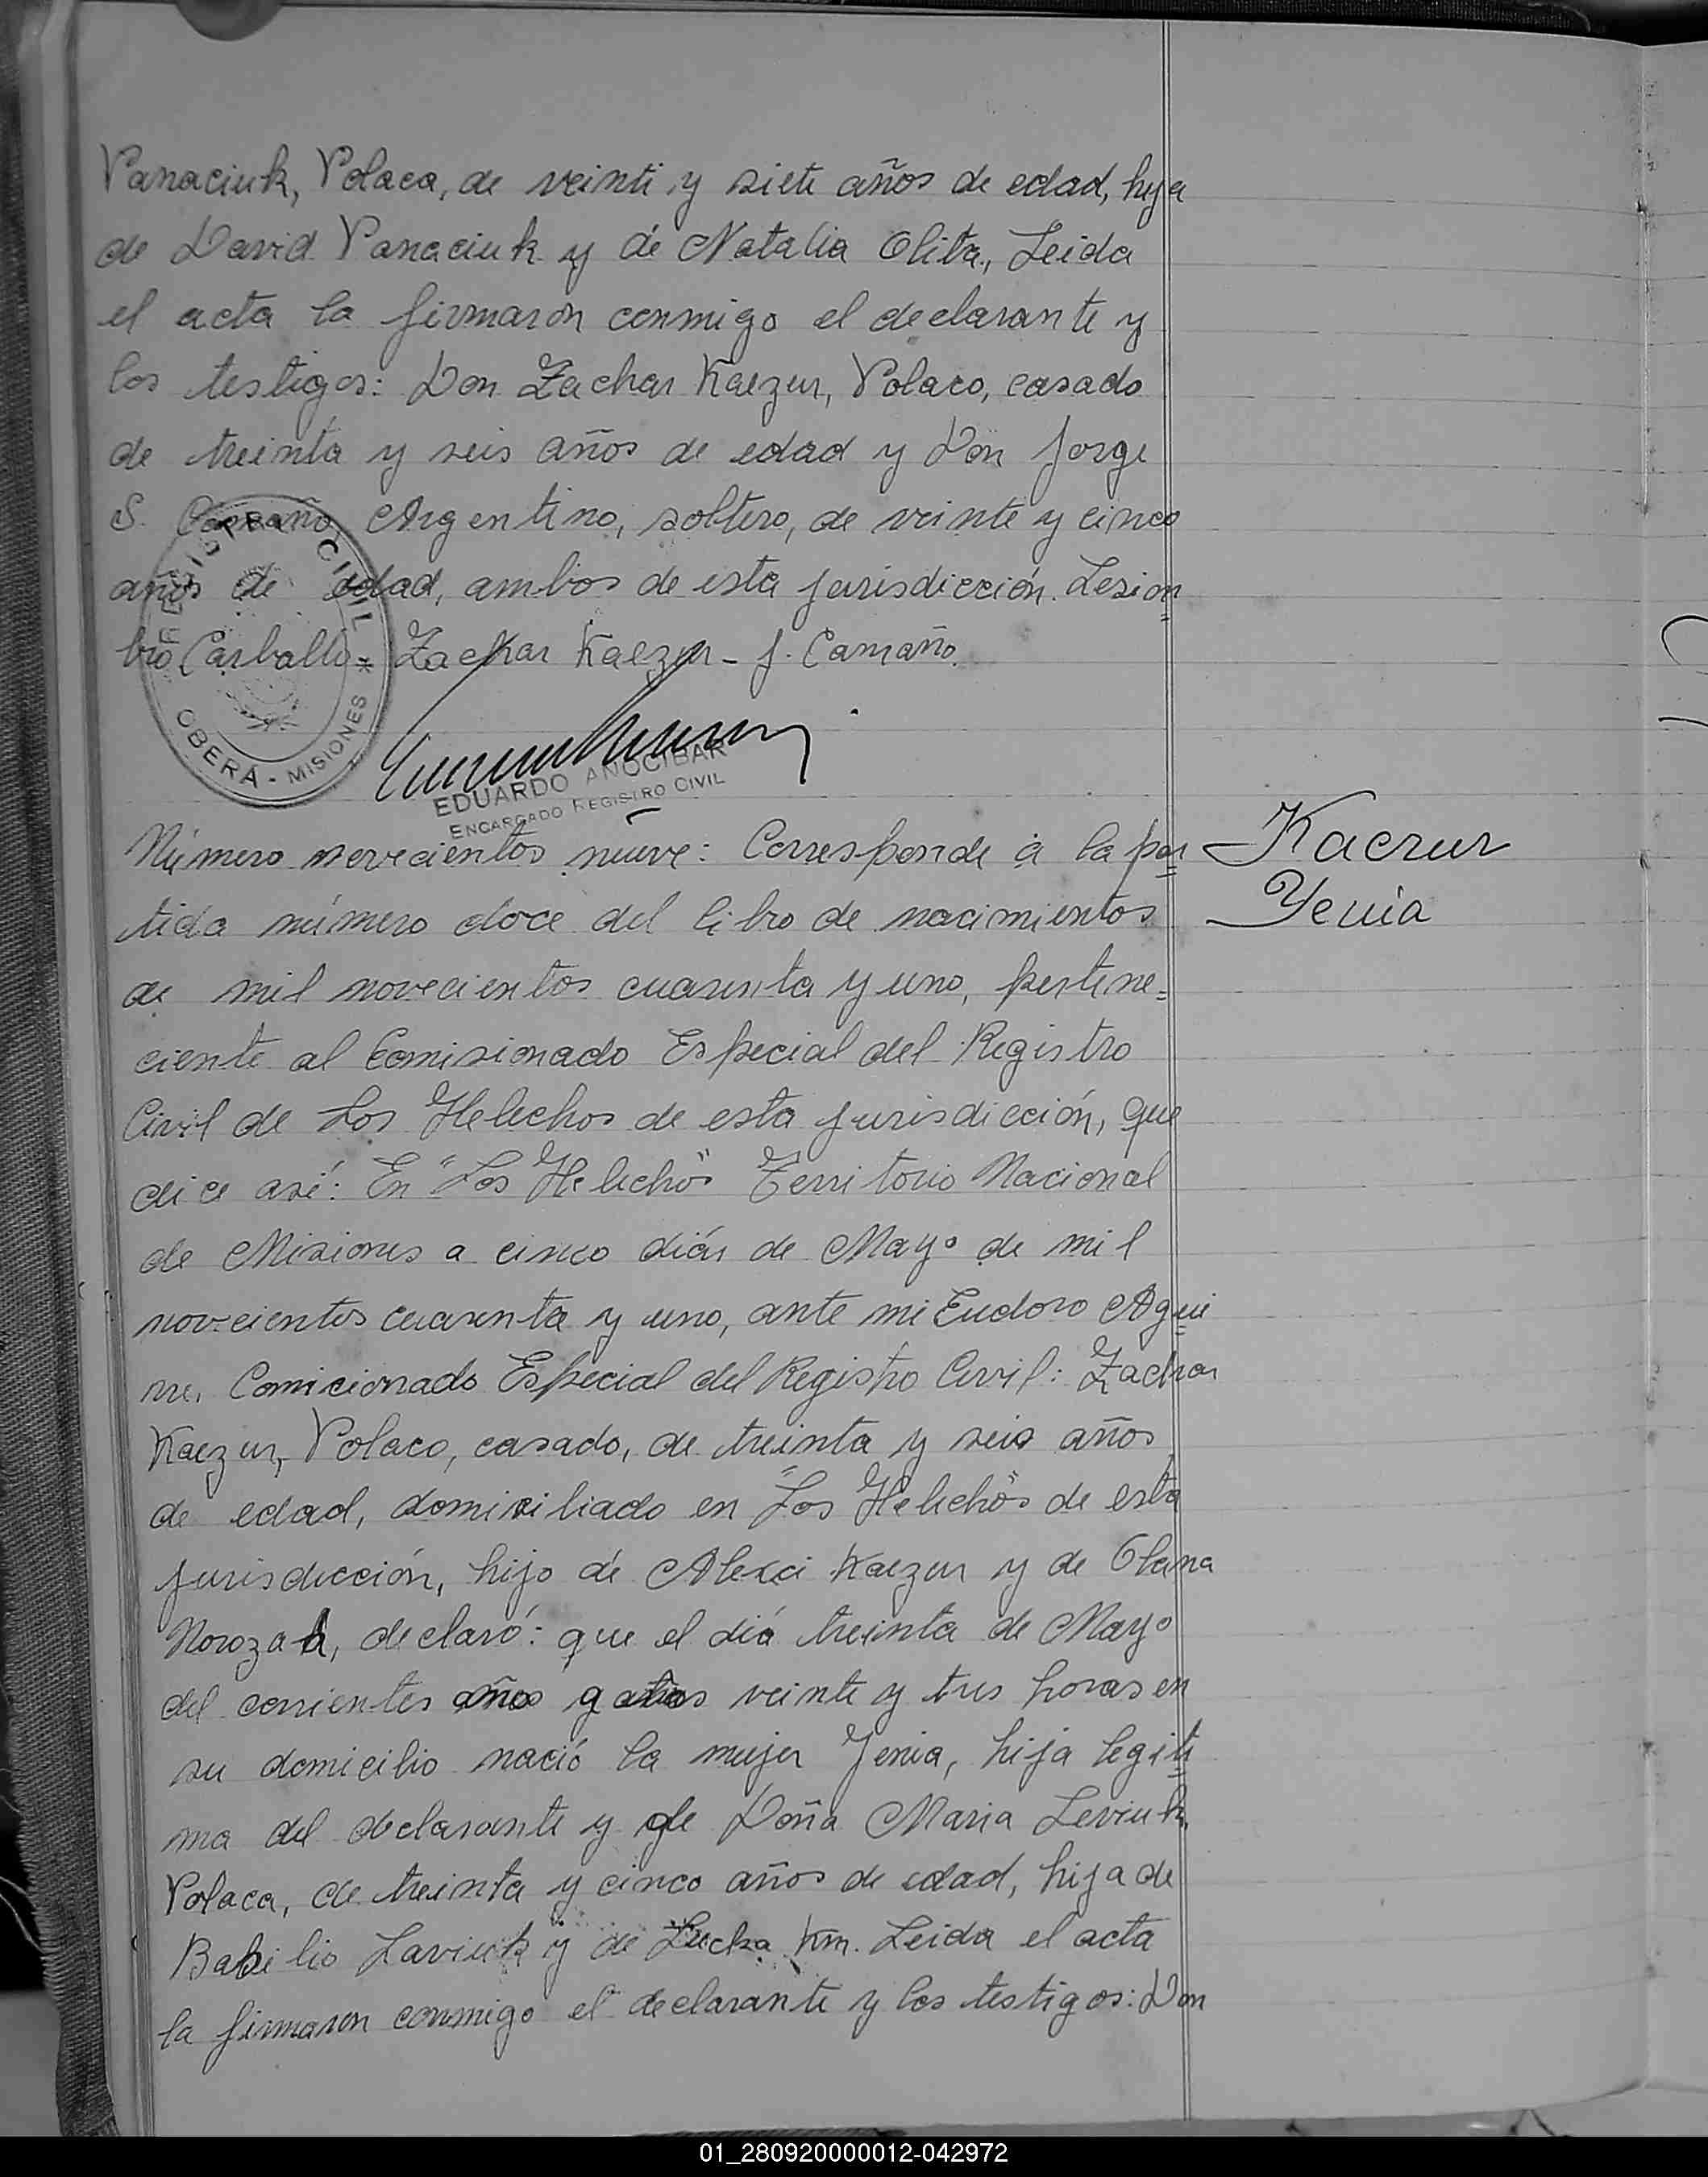 Panaciuk, Polaca, de veinti y siete años de edad, hija
de David Panaciuk y de Natalia Olita, Leida
el acta la firmaron conmigo el declarante y
los testigos: Don Zachar Kaczur, Polaco, casado
de treinta y seis años de edad y Don Jorge
S. Camaño, Argentino, soltero, de veinte y cinco
años de edad, ambos de esta jurisdicción. Lesion
bro Carballo = Zachar Kaczur - J. Camaño.
REGISTRO CIVIL * OBERÁ - MISIONES
EDUARDO ANOCIBAR
ENCARGADO REGISTRO CIVIL
Número novecientos nueve: Corresponde a la par
Kaczur
Yenia
tida número doce del libro de nacimientos
de mil novecientos cuarenta y uno, pertene=
ciente al Comisionado Especial del Registro
Civil de Los Helechos de esta jurisdicción, que
dice así: En "Los Helechos" Territorio Nacional
de Misiones a cinco días de Mayo de mil
novecientos cuarenta y uno, ante mi Eudoro Agui
rre. Comicionado Especial del Registro Civil: Zachar
Kaczur, Polaco, casado, de treinta y seis años
de edad, domiciliado en "Los Helechos" de esta
jurisdicción, hijo de Alexci Kaczur y de Olana
declaró: que el día treinta de Mayo
del corrientes años veinte y tres horas en
su domicilio nació la mujer Yenia, hija legiti
ma del declarante y de Doña Maria Leviuk,
Polaca, de treinta y cinco años de edad, hija de
Babilio Laviuk y de Lucka Km. Leida el acta
la firmaron conmigo el declarante y los testigos: Don
01_280920000012-042972